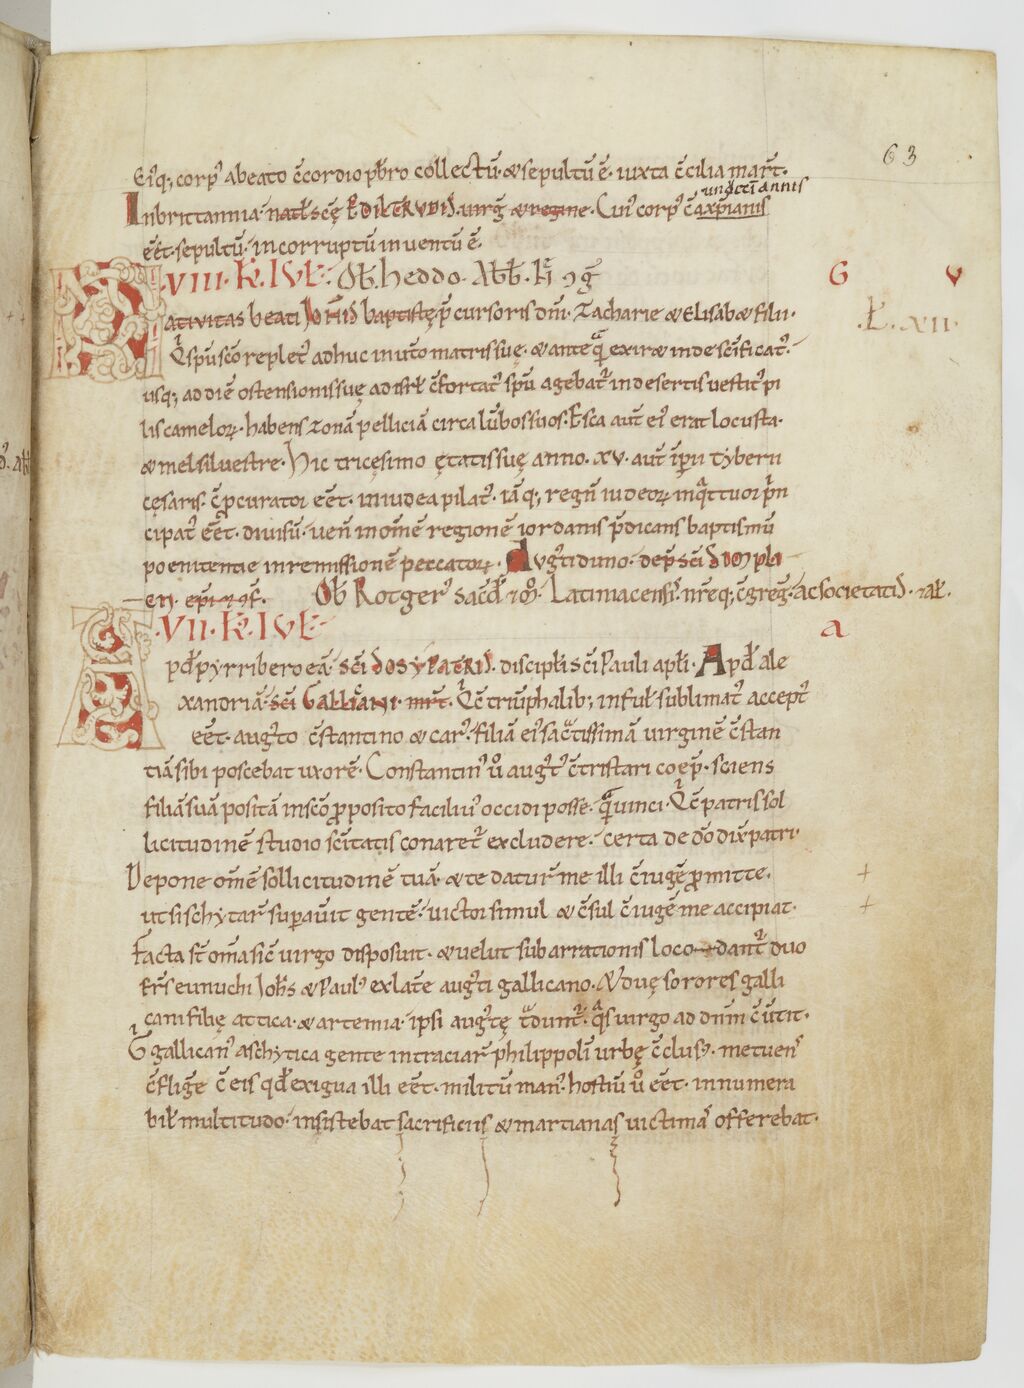 63
Eiꝰq; corpꝰ abeato c̄cordio pb̄ro collectū. & sepultū ē. iuxta c̄cilia mart̄.
undeci annis
Inbrittannia. nat̄ sc̄ę EDILTRVDIS. uirḡ & regine. Cuiꝰ corpꝰ c̄ axp̄ianis
eēt. sepultū. incorruptū inuentū ē.
VIII. K̄. IVL̄. Ob̄. heddo. Abb̄. h̄ ꝯḡ
G V
Natiuitas beati IOH̄IS baptistę p̄cursoris dn̄i. Zacharie & Elisab& filii.
L. XII.
Q̄ spū sc̄o repletꝰ adhuc inut̄o matris suę. & anteq̄ exir& inde sc̄ificatꝰ.
usq; addiē ostensionis suę adisrl̄ c̄fortatꝰ spū agebat̄ indesertis uestitꝰ pi
lis cameloꝝ. habens zonā pelliciā circa lūbos suos. Esca aut̄ eiꝰ erat locusta.
& mel siluestre. Hic tricęsimo ętatis suę anno. xv. aut̄ īperii tyberii
cęsaris. c̄ p̄curator eēt. iniudea pilatꝰ. iāq; regn̄ iudeoꝝ inq̄ttuor p̄n
cipatꝰ eēt. diuisū. uen̄ inom̄e regionē iordanis p̄dicans baptismū
poenitentie inremissionē peccatoꝝ. Augꝰtiduno. dep̄ sc̄i SIMPLI
cii. ep̄i & ꝯf. Ob̄ Rotgerꝰ sacd̄ & mō. Latiniacensis. nr̄eq; c̄greḡ. ac societatis. & al̄.
VII. K̄. IVL̄
a
Apd̄ pyrriberoeā. sc̄i SOSYPATRIS. discipl̄i sc̄i Pauli apl̄i. Apd̄ ale
xandriā. sc̄i GALLICANI. mr̄t. Q̄ c̄ triūphalib; inful̄ sublimatꝰ acceptꝰ
eēt. augꝰto c̄stantino & carꝰ. filiā eiꝰ sāctissimā uirginē c̄stan
tiā sibi poscebat uxorē. Constantinꝰ ů augꝰt c̄tristari coep̄. sciens
filiā suā positā insc̄o p̄posito faciliꝰ occidi posse. q̄ uinci. Q̄ c̄ patris sol
licitudinē studio sc̄itatis conaret̄ excludere. certa de dō dix̄ patri.
Depone om̄e sollicitudinē tuā. & te datur̄ me illi c̄iugē p̄mitte.
ut si schytar̄ sup̄auit gentē. uictor simul & c̄sul c̄iugē me accipiat.
Facta st̄ om̄a sic̄ uirgo disposuit. & uelut subarrationis loco dant̄ duo
fr̄s eunuchi Ioh̄s & Paulꝰ exlat̄e augꝰti gallicano. & duę sorores galli
cani filię attica. & artemia. ipsi augꝰtę tdunt̄. q̄s uirgo ad dn̄m c̄ūtit.
G gallicanꝰ aschytica gente intraciar̄ philippoli urbę c̄clusꝰ. metuens
c̄fligē c̄ eis qd̄ exigua illi eēt. militū manꝰ. hostiū ů eēt. innumera
bil̄ multitudo. insistebat sacrificiis & martianas uictimas offerebat.